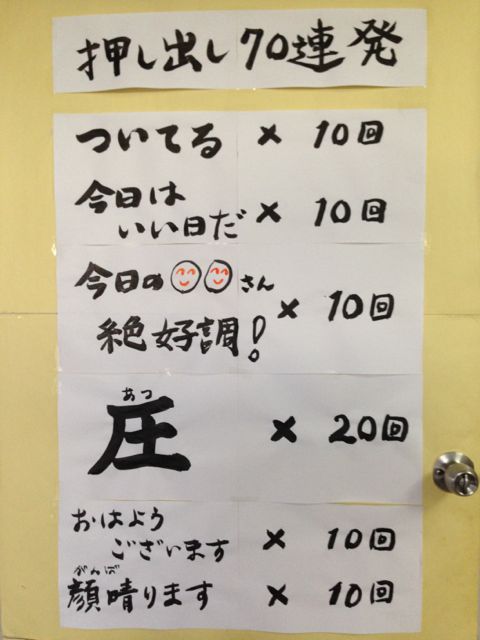 押し出し70連発
ついてる × 10回
今日は
いい日だ × 10回
今日の○○さん
絶好調! × 10回
あつ
圧 × 20回
おはよう
ございます × 10回
がんば
顔晴ります × 10回